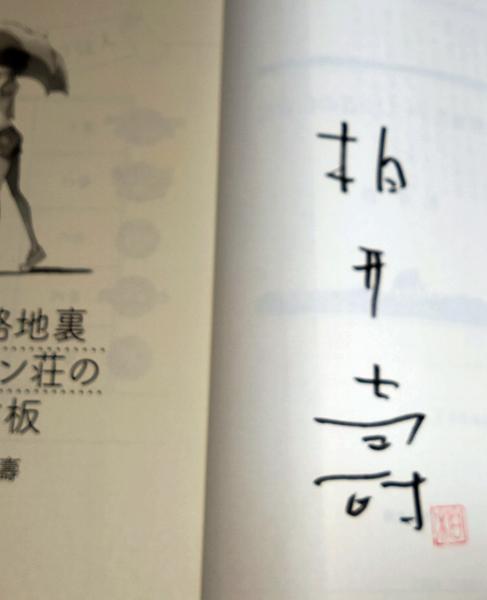 路地裏
ン荘の
板
壽
柏井壽
柏